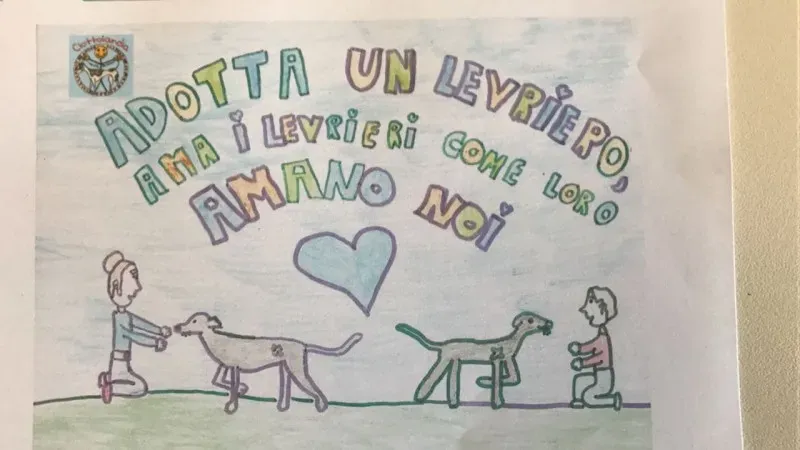 Cuttolandia
ADOTTA UN LEVRiERO,
AMA i LEVRiERi COME LORO
AMANO NOi